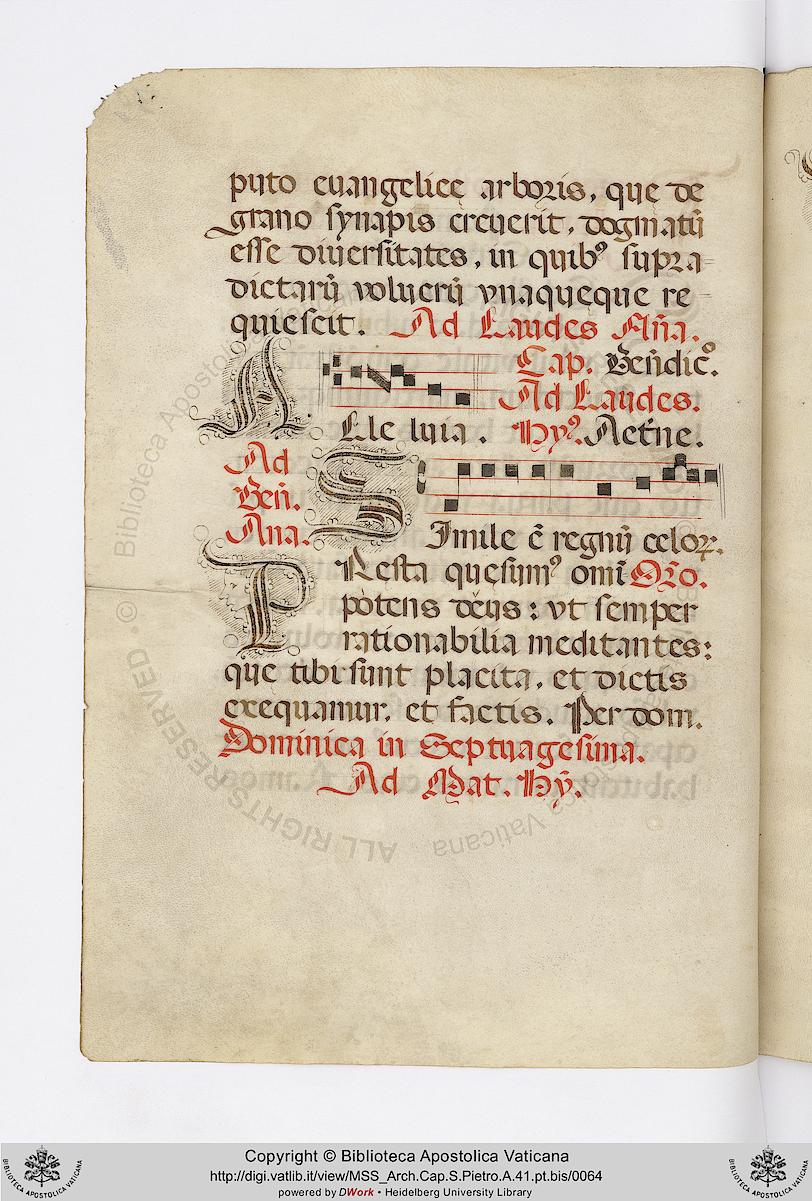 puto euangelice arboris, que de
grano synapis creuerit, dogmatū
esse diuersitates, in quibꝰ supra
dictarū volucrū vnaqueque re
quiescit. Ad Laudes Añа.
Cap. Beñdicꝰ.
Ad Laudes.
A Lle luia. Hyꝰ. Aet̄ne.
Ad
Beñ.
Ana.
S Imile ē regnū celoꝝ.
P Resta quesumꝰ omī Oŕo.
potens deus: vt semper
rationabilia meditantes:
que tibi sunt placita, et dictis
exequamur, et factis. Per dom.
Dominica in Septuagesima.
Ad Mat. Hȳ.
© Biblioteca Apostolica Vaticana
ALL RIGHTS RESERVED
Copyright © Biblioteca Apostolica Vaticana
http://digi.vatlib.it/view/MSS_Arch.Cap.S.Pietro.A.41.pt.bis/0064
powered by DWork • Heidelberg University Library